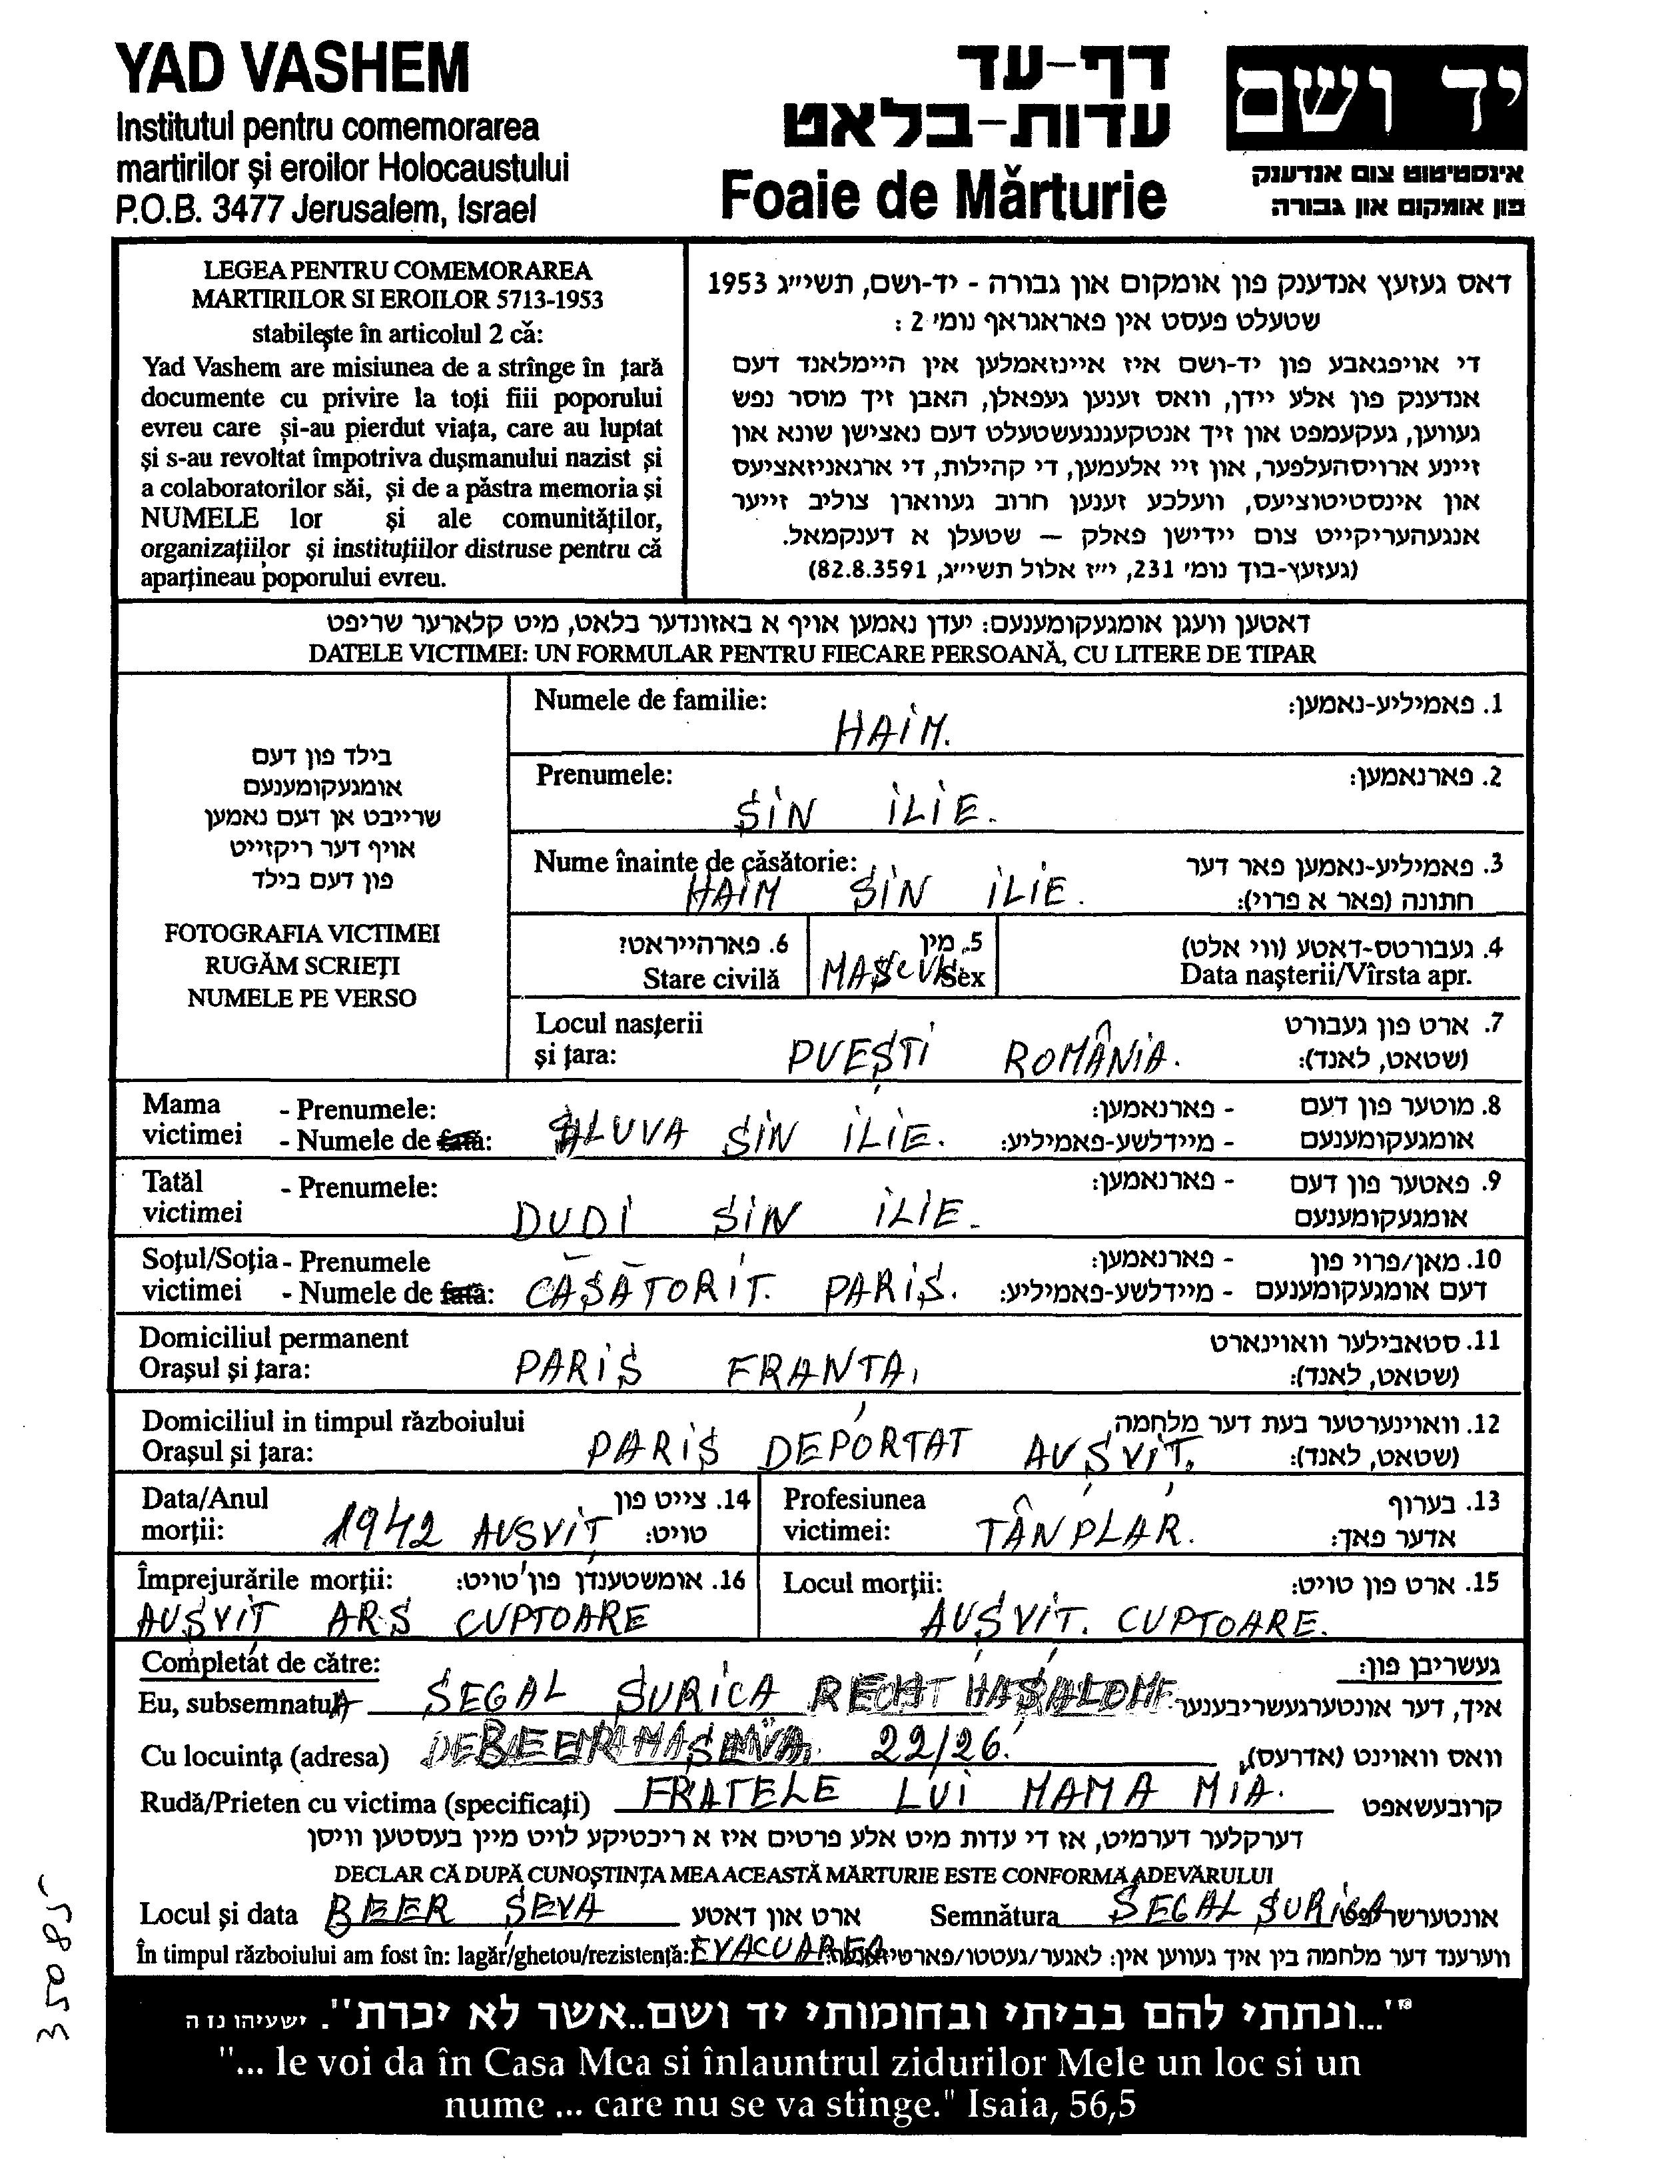 YAD VASHEM
Institutul pentru comemorarea
martirilor și eroilor Holocaustului
P.O.B. 3477 Jerusalem, Israel
דף-עד
עדות-בלאט
Foaie de Mărturie
יד ושם
אינסטיטוט צום אנדענק
פון אומקום און גבורה
LEGEA PENTRU COMEMORAREA
MARTIRILOR SI EROILOR 5713-1953
stabilește în articolul 2 că:
Yad Vashem are misiunea de a strînge în țară
documente cu privire la toți fiii poporului
evreu care și-au pierdut viața, care au luptat
și s-au revoltat împotriva dușmanului nazist și
a colaboratorilor săi, și de a păstra memoria și
NUMELE lor și ale comunităților,
organizațiilor și instituțiilor distruse pentru că
aparțineau poporului evreu.
דאס געזעץ אנדענק פון אומקום און גבורה - יד-ושם, תשי״ג 1953
שטעלט פעסט אין פאראגראף נומ׳ 2 :
די אויפגאבע פון יד-ושם איז איינזאמלען אין היימלאנד דעם
אנדענק פון אלע יידן, וואס זענען געפאלן, האבן זיך מוסר נפש
געווען, געקעמפט און זיך אנטקעגנגעשטעלט דעם נאצישן שונא און
זיינע ארויסהעלפער, און זיי אלעמען, די קהילות, די ארגאניזאציעס
און אינסטיטוציעס, וועלכע זענען חרוב געווארן צוליב זייער
אנגעהעריקייט צום יידישן פאלק — שטעלן א דענקמאל.
(געזעץ-בוך נומ׳ 231, י״ז אלול תשי״ג, 82.8.3591)
דאטען וועגן אומגעקומענעם: יעדן נאמען אויף א באזונדער בלאט, מיט קלארער שריפט
DATELE VICTIMEI: UN FORMULAR PENTRU FIECARE PERSOANĂ, CU LITERE DE TIPAR
בילד פון דעם
אומגעקומענעם
שרייבט אן דעם נאמען
אויף דער ריקזייט
פון דעם בילד
FOTOGRAFIA VICTIMEI
RUGĂM SCRIEȚI
NUMELE PE VERSO
Numele de familie: 1. פאמיליע-נאמען:
HAIM.
Prenumele: 2. פארנאמען:
SIN ILIE.
Nume înainte de căsătorie: 3. פאמיליע-נאמען פאר דער
HAIM SIN ILIE. חתונה (פאר א פרוי):
6. פארהייראט? 5. מין 4. געבורטס-דאטע (ווי אלט)
Stare civilă MASCUL Sex Data nașterii/Vîrsta apr.
Locul nașterii 7. ארט פון געבורט
și țara: PUEȘTI ROMÂNIA. (שטאט, לאנד):
Mama - Prenumele: - פארנאמען: 8. מוטער פון דעם
victimei - Numele de fată: SLUVA SIN ILIE. - מיידלשע-פאמיליע: אומגעקומענעם
Tatăl - Prenumele: - פארנאמען: 9. פאטער פון דעם
victimei DUDI SIN ILIE. אומגעקומענעם
Soțul/Soția - Prenumele - פארנאמען: 10. מאן/פרוי פון
victimei - Numele de fată: CĂSĂTORIT. PARIS. - מיידלשע-פאמיליע: דעם אומגעקומענעם
Domiciliul permanent 11. סטאבילער וואוינארט
Orașul și țara: PARIS FRANTA, (שטאט, לאנד):
Domiciliul in timpul războiului 12. וואוינערטער בעת דער מלחמה,
Orașul și țara: PARIS DEPORTAT AUSVIT, (שטאט, לאנד):
Data/Anul 14. צייט פון
morții: 1942 AUSVIT טויט:
Profesiunea 13. בערוף
victimei: TÂNPLAR. אדער פאך:
Împrejurările morții: 16. אומשטענדן פון טויט:
AUSVIT ARS CUPTOARE
Locul morții: 15. ארט פון טויט:
AUSVIT. CUPTOARE.
Completat de către: געשריבן פון:
Eu, subsemnatul SEGAL SURICA איך, דער אונטערגעשריבענער
Cu locuința (adresa) 22/26. וואס וואוינט (אדרעס)
Rudă/Prieten cu victima (specificați) FRATELE LUI MAMA MIA. קרובעשאפט
דערקלער דערמיט, אז די עדות מיט אלע פרטים איז א ריכטיקע לויט מיין בעסטען וויסן
DECLAR CĂ DUPĂ CUNOȘTINȚA MEA ACEASTĂ MĂRTURIE ESTE CONFORMĂ ADEVĂRULUI
Locul și data BEER SEVA ארט און דאטע Semnătura SEGAL SURICA
În timpul războiului am fost în: lagăr/ghetou/rezistență: EVACUAREA ווערענד דער מלחמה בין איך געווען אין: לאגער/געטטו
"...ונתתי להם בביתי ובחומותי יד ושם..אשר לא יכרת". ישעיהו נו ה
"... le voi da în Casa Mea si înlauntrul zidurilor Mele un loc si un
nume ... care nu se va stinge." Isaia, 56,5